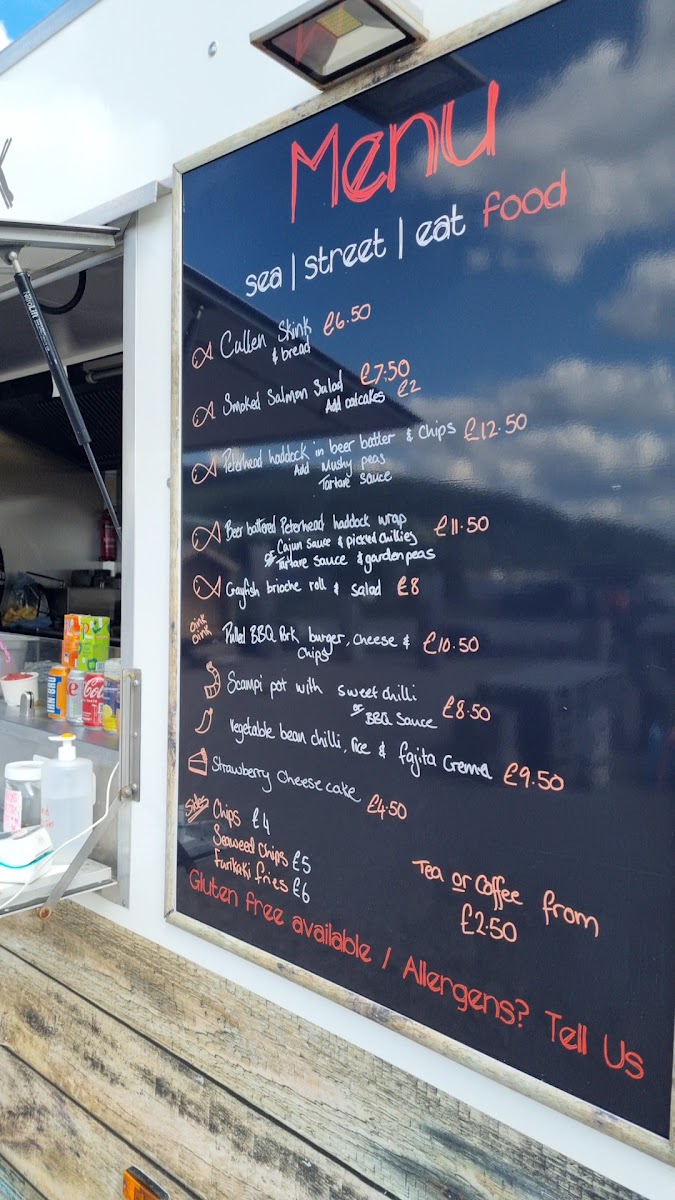 Menu
sea | street | eat food
Cullen Skink £6.50
& bread
Smoked Salmon Salad £7.50
Add oatcakes £2
Peterhead haddock in beer batter & chips £12.50
Add Mushy peas
Tartare sauce
Beer battered Peterhead haddock wrap £11.50
Cajun sauce & pickled chillies
or Tartare sauce & garden peas
Crayfish brioche roll & salad £8
oink
oink
Pulled BBQ Pork burger, cheese & £10.50
chips
Scampi pot with sweet chilli £8.50
or
BBQ Sauce
Vegetable bean chilli, rice & fajita Crema £9.50
Strawberry Cheesecake £4.50
Sides
Chips £4
Seaweed Chips £5
Furikaki fries £6
Tea or Coffee from
£2.50
Gluten free available / Allergens? Tell Us